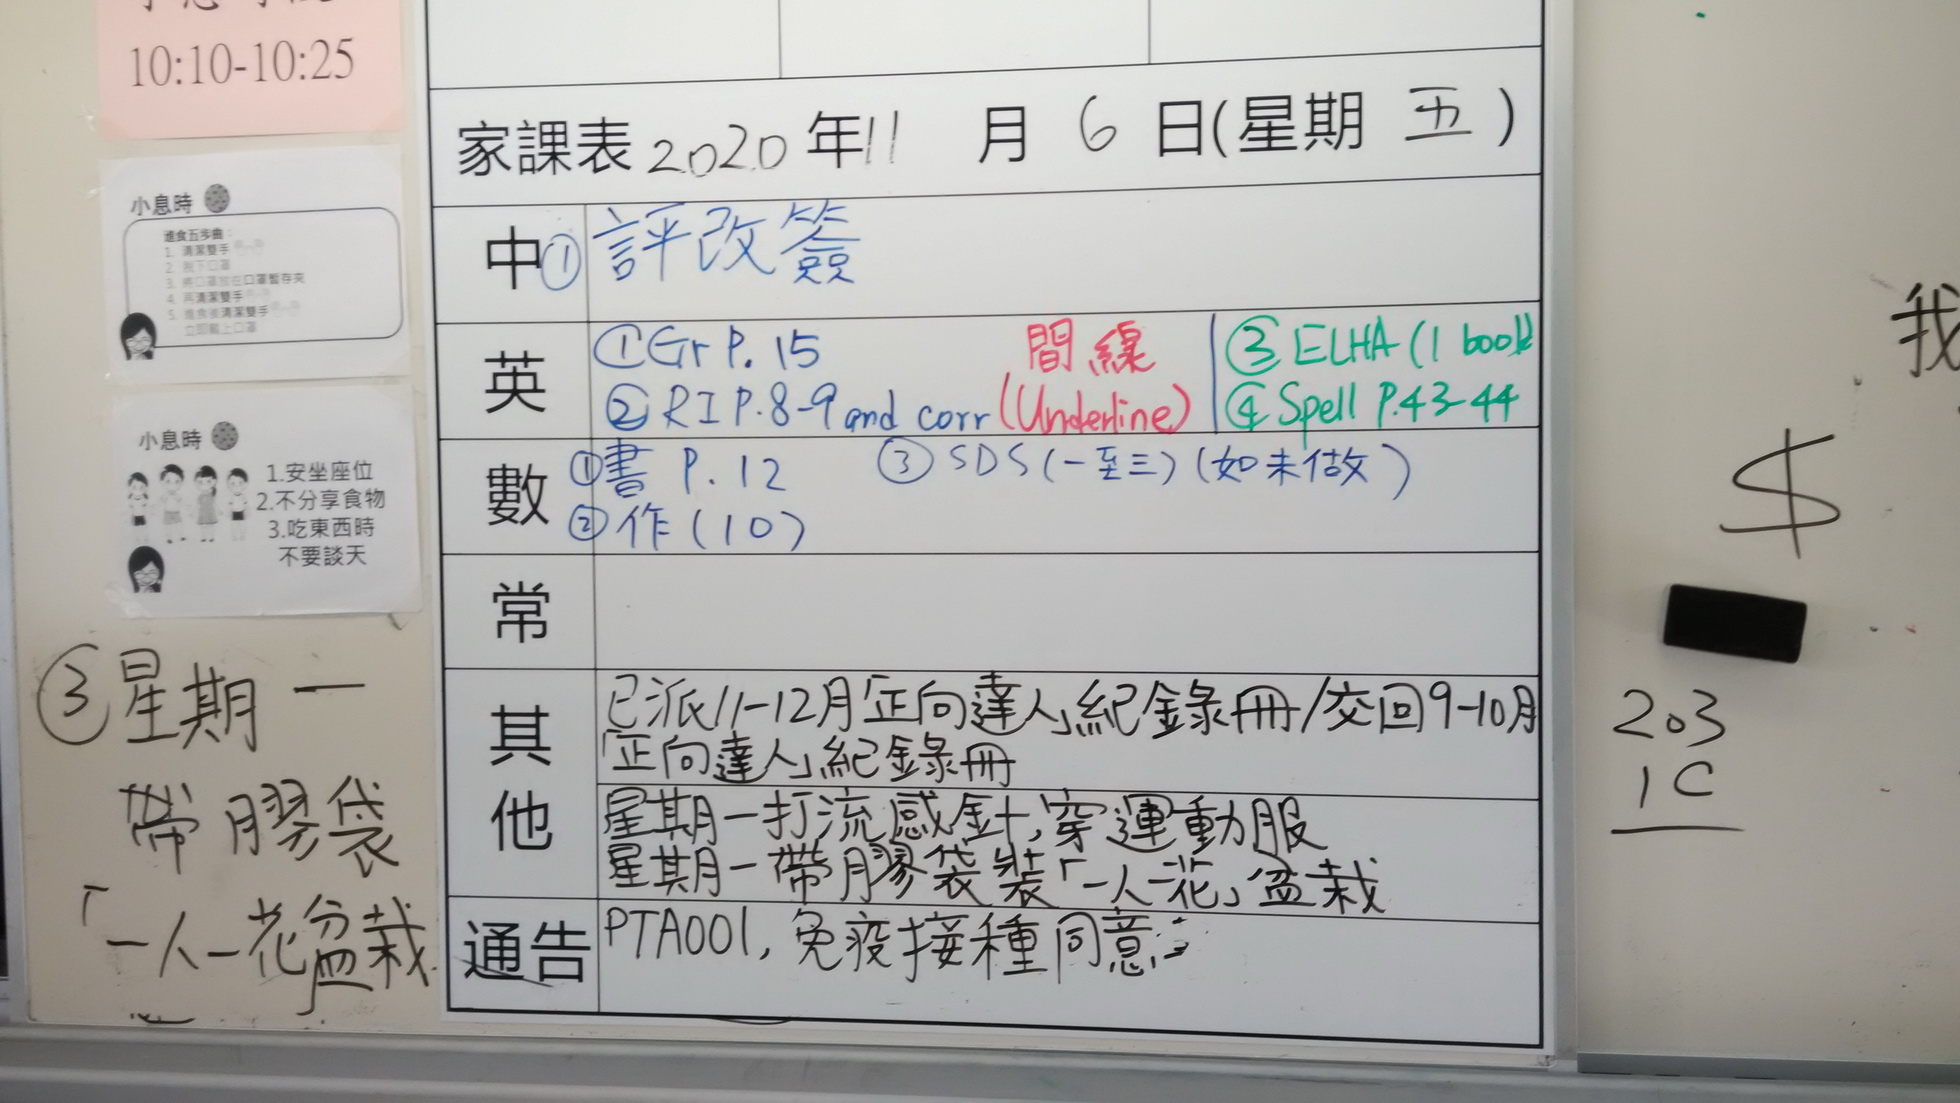 10:10-10:25
小息時
進食五步曲：
1. 清潔雙手
2. 脫下口罩
3. 將口罩放在口罩暫存夾
4. 再清潔雙手
5. 進食後清潔雙手
立即戴上口罩
小息時
1.安坐座位
2.不分享食物
3.吃東西時
不要談天
③星期一
帶膠袋
「一人一花盆栽
家課表 2020 年 11 月 6 日(星期 五)
中 ① 評改簽
英 ① Gr P. 15
② RI P.8-9 and corr
間線
(Underline)
③ ELHA (1 book)
④ Spell P.43-44
數 ①書 P. 12 ③ SDS (一至三) (如未做)
②作(10)
常
其他
已派11-12月「正向達人」紀錄冊/交回9-10月
「正向達人」紀錄冊
星期一打流感針,穿運動服
星期一帶膠袋裝「一人一花」盆栽
通告 PTA001, 免疫接種同意
我
$
203
1C